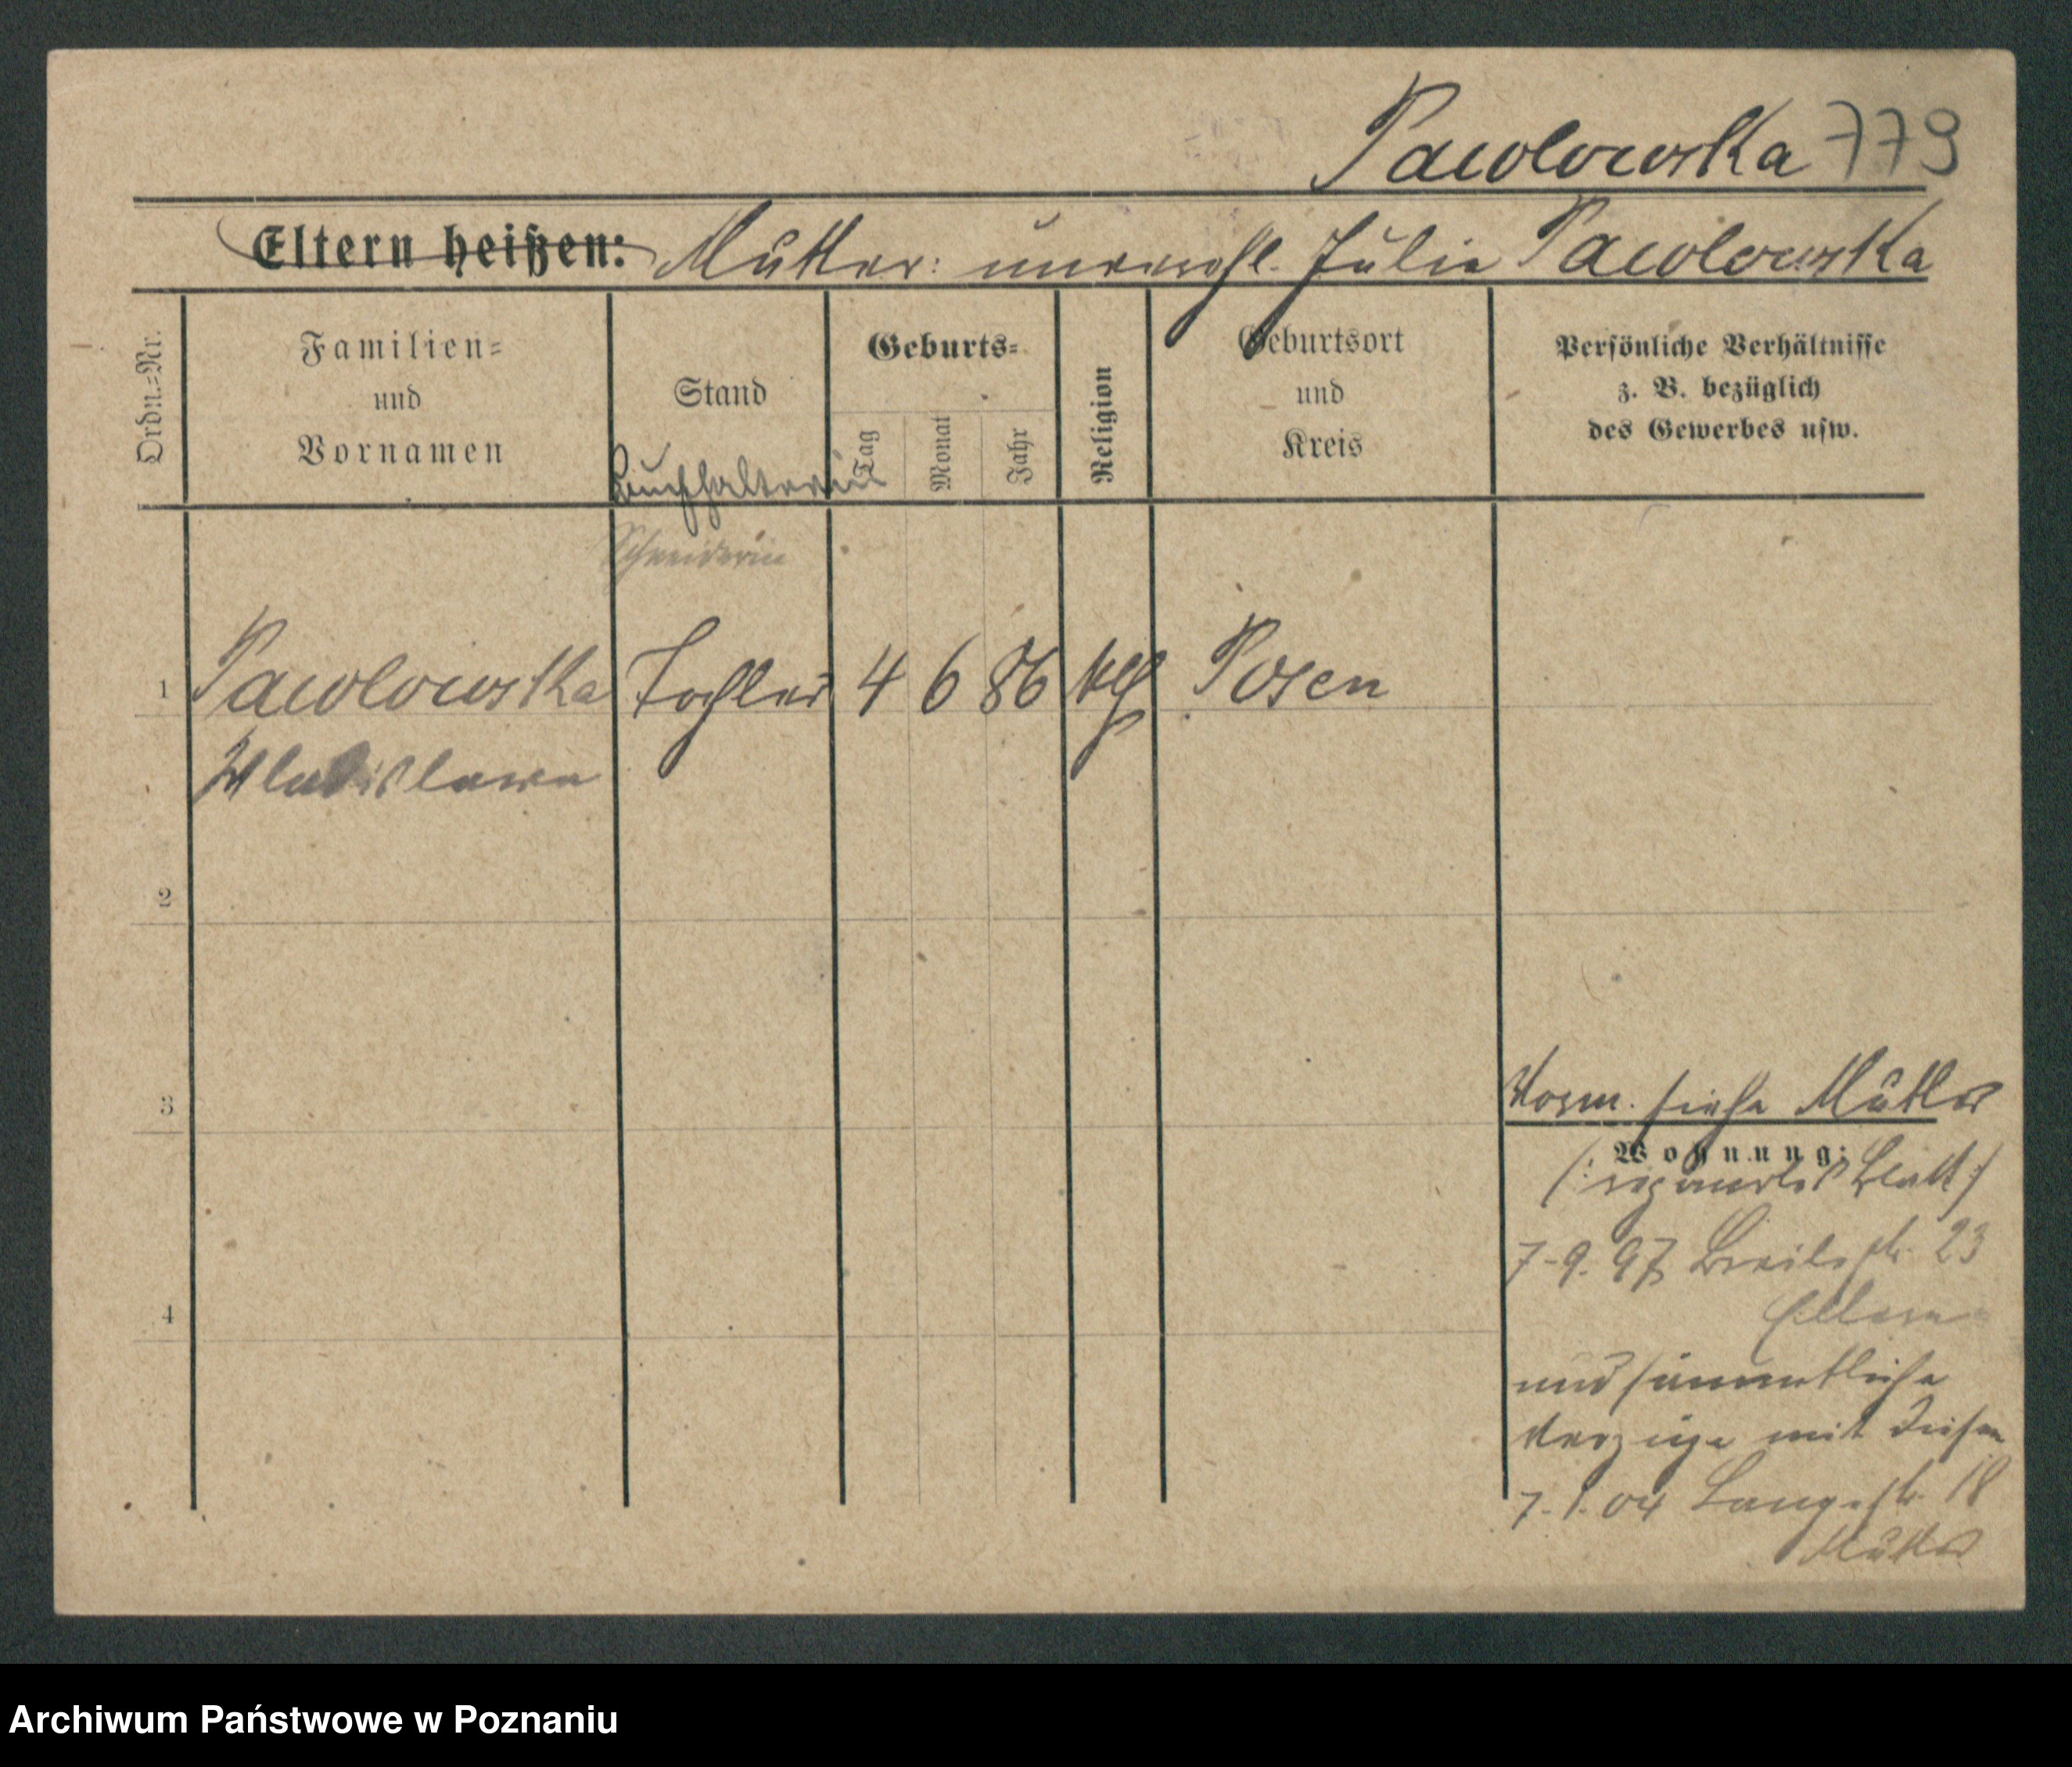 Pawlowska 779
Eltern heißen: Mutter: unverehl. Julie Pawlowska
Ordn.=Nr.
Familien=
und
Vornamen
Stand
Buchhalterin
Geburts=
Tag
Monat
Jahr
Religion
Geburtsort
und
Kreis
Persönliche Verhältnisse
z. B. bezüglich
des Gewerbes usw.
Schneiderin
1 Pawlowska Tochter 4 6 86 kth Posen
Wladislawa
2
3
4
siehe Mutter
Wohnung:
(: separates Blatt :)
7.9.97 Breitestr. 23
Eltern
und sämmtliche
Verzüge mit diesen
7.1.04 Langestr. 18
Mutter
Archiwum Państwowe w Poznaniu